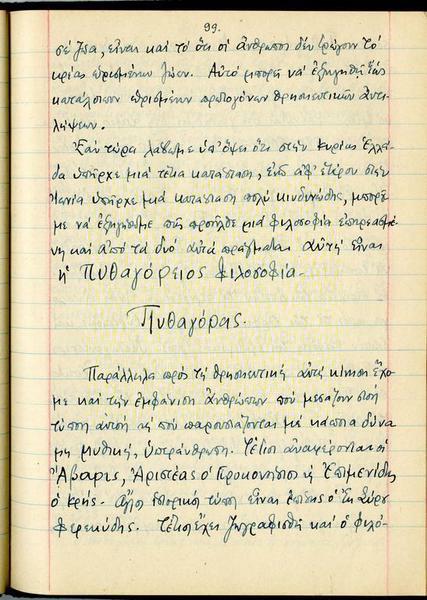 99.
σὲ ζῶα, εἶναι καὶ τὸ ὅτι οἱ ἄνθρωποι δὲν τρώγουν τὸ
κρέας ὡρισμένων ζώων. Αὐτὸ μπορεῖ νὰ ἐξηγηθῇ ὡς
κατάλοιπον ὡρισμένων πρωτογόνων θρησκευτικῶν ἀντι-
λήψεων.
Ἐὰν τώρα λάβωμε ὑπ' ὄψει ὅτι στὴν κυρίως Ἑλλά-
δα ὑπῆρχε μιὰ τέτοια κατάστασι, ἐνῶ ἀφ' ἑτέρου στὴν
Ἰωνία ὑπῆρχε μιὰ κατάστασι πολὺ κινδυνώδης, μποροῦ-
με νὰ ἐξηγήσωμε πῶς προῆλθε μιὰ φιλοσοφία ἐπηρεασμέ-
νη καὶ ἀπὸ τὰ δυὸ αὐτὰ πράγματα. Αὐτὴ εἶναι
ἡ Πυθαγόρειος φιλοσοφία.
Πυθαγόρας.
Παράλληλα πρὸς τὴ θρησκευτικὴ αὐτὴ κίνησι ἔχο-
με καὶ τὴν ἐμφάνισι ἀνθρώπων ποὺ μοιάζουν στὸν
τύπο αὐτὸν καὶ ποὺ παρουσιάζονται μὲ κάποια δύνα-
μη μυθική, ὑπεράνθρωπη. Τέτοιοι ἀναφέρονται οἱ
Ἄβαρις, Ἀριστέας ὁ Προκοννήσιος ἢ Ἐπιμενίδης
ὁ Κρής. Ἄλλος ἱστορικὸς τύπος εἶναι ἐπίσης ὁ ἐκ Σύρου
Φερεκύδης. Τέτοιος ἔχει ζωγραφισθῆ καὶ ὁ φιλό-